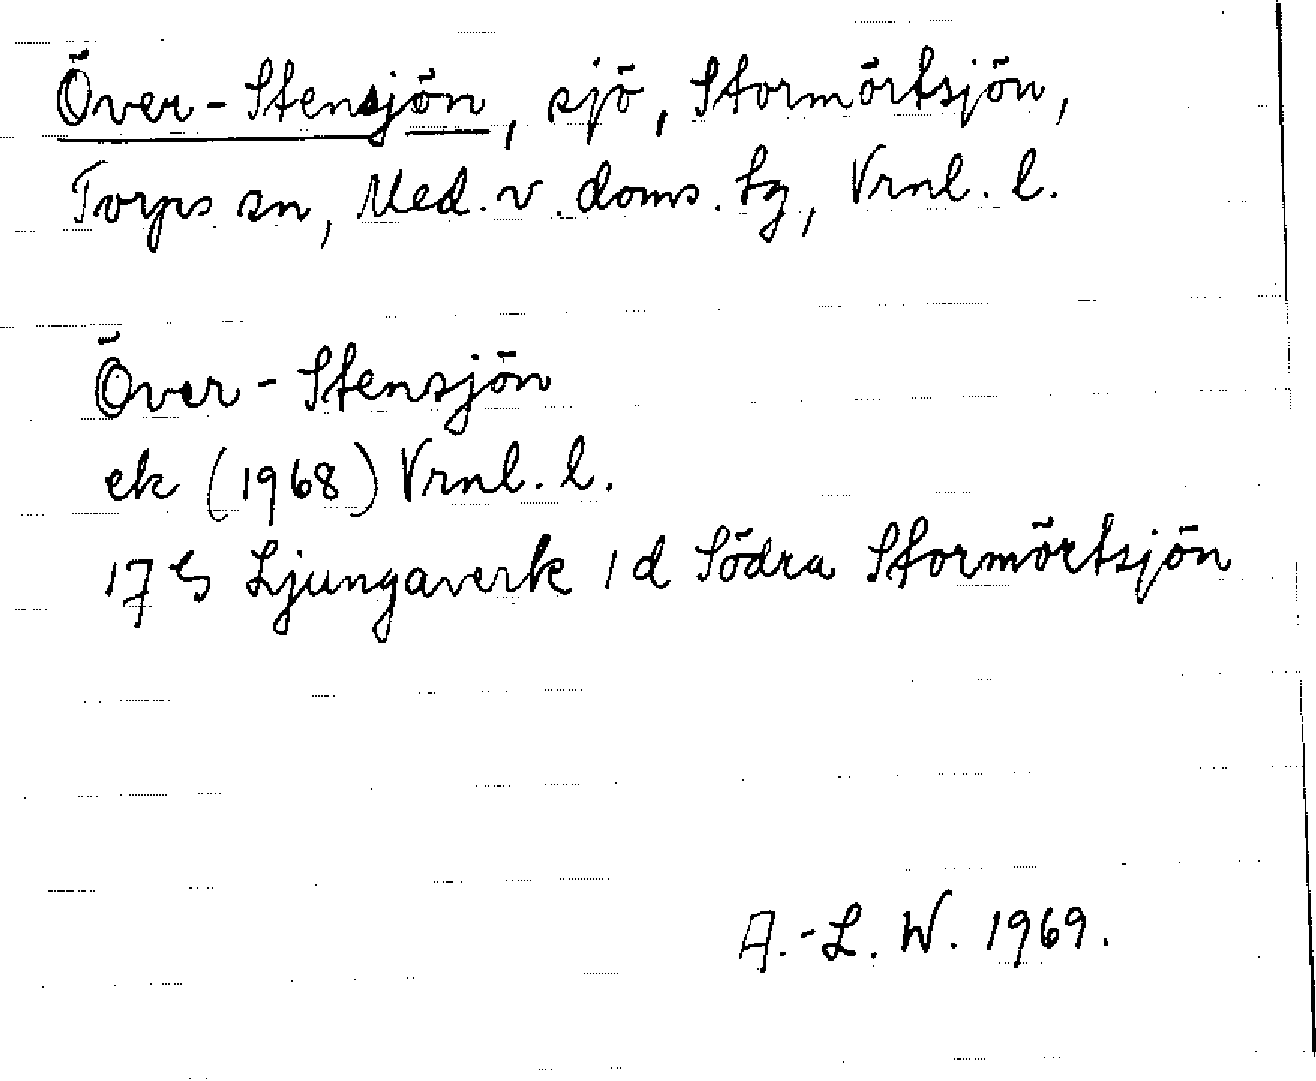 Över-Stensjön, sjö, Stormörtsjön,
Torps sn, Med. v. doms. tg, Vrnl. l.
Över-Stensjön
ek (1968) Vrnl. l.
17 G Ljungaverk 1 d Södra Stormörtsjön
A.-L. W. 1969.